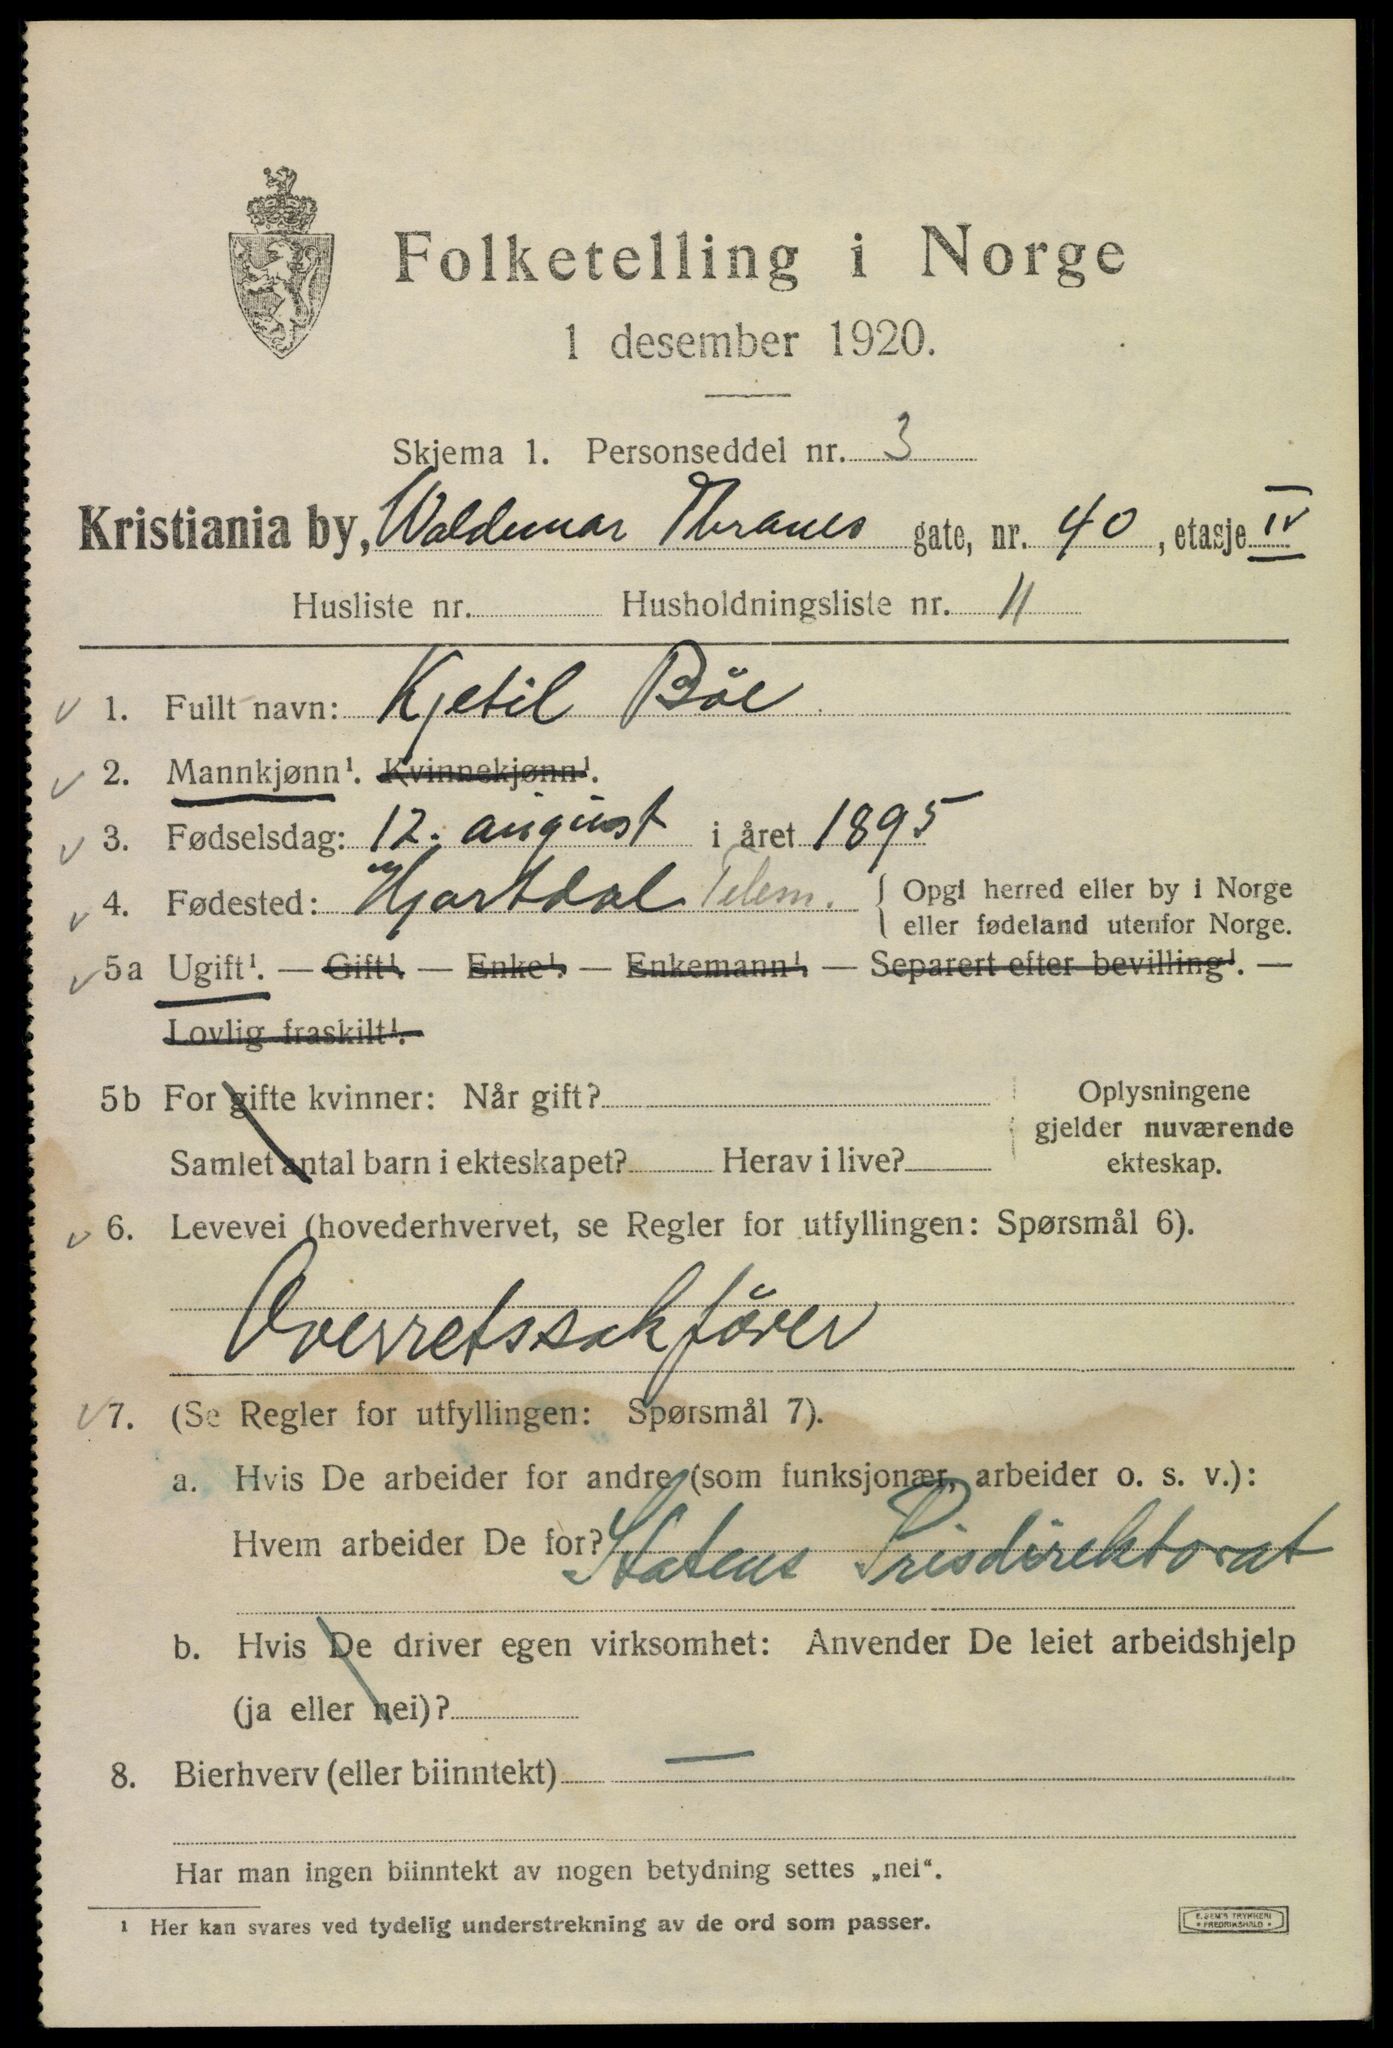 Folketelling i Norge
1 desember 1920.
Skjema 1. Personseddel nr. 3
Kristiania by, Waldemar Thranes gate, nr. 40, etasje IV
Husliste nr. Husholdningsliste nr. 11
1. Fullt navn: Kjetil Böe
2. Mannkjønn¹. Kvinnekjønn¹.
3. Fødselsdag: 12. august i året 1895
4. Fødested: Hjartdal Telem. { Opgi herred eller by i Norge
eller fødeland utenfor Norge.
5a Ugift¹. — Gift¹. — Enke¹. — Enkemann¹. — Separert efter bevilling¹. —
Lovlig fraskilt¹.
5b For gifte kvinner: Når gift? Oplysningene
gjelder nuværende
Samlet antal barn i ekteskapet? Herav i live? ekteskap.
6. Levevei (hovederhvervet, se Regler for utfyllingen: Spørsmål 6).
Overretssakfører
7. (Se Regler for utfyllingen: Spørsmål 7).
a. Hvis De arbeider for andre (som funksjonær, arbeider o. s. v.):
Hvem arbeider De for? Statens Prisdirektorat
b. Hvis De driver egen virksomhet: Anvender De leiet arbeidshjelp
(ja eller nei)?
8. Bierhverv (eller biinntekt) —
Har man ingen biinntekt av nogen betydning settes „nei“.
¹ Her kan svares ved tydelig understrekning av de ord som passer.
E. SEM'S TRYKKERI
* FREDRIKSHALD *